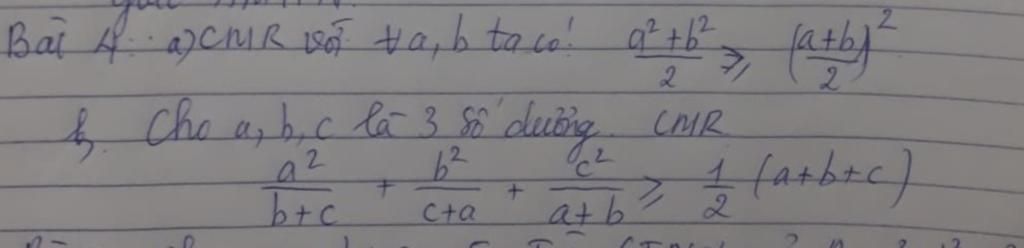 Bài 4: a) CMR với ∀a, b ta có: (a²+b²)/2 ≥ ((a+b)/2)²
b, Cho a, b, c là 3 số dương. CMR
a²/(b+c) + b²/(c+a) + c²/(a+b) ≥ 1/2 (a+b+c)